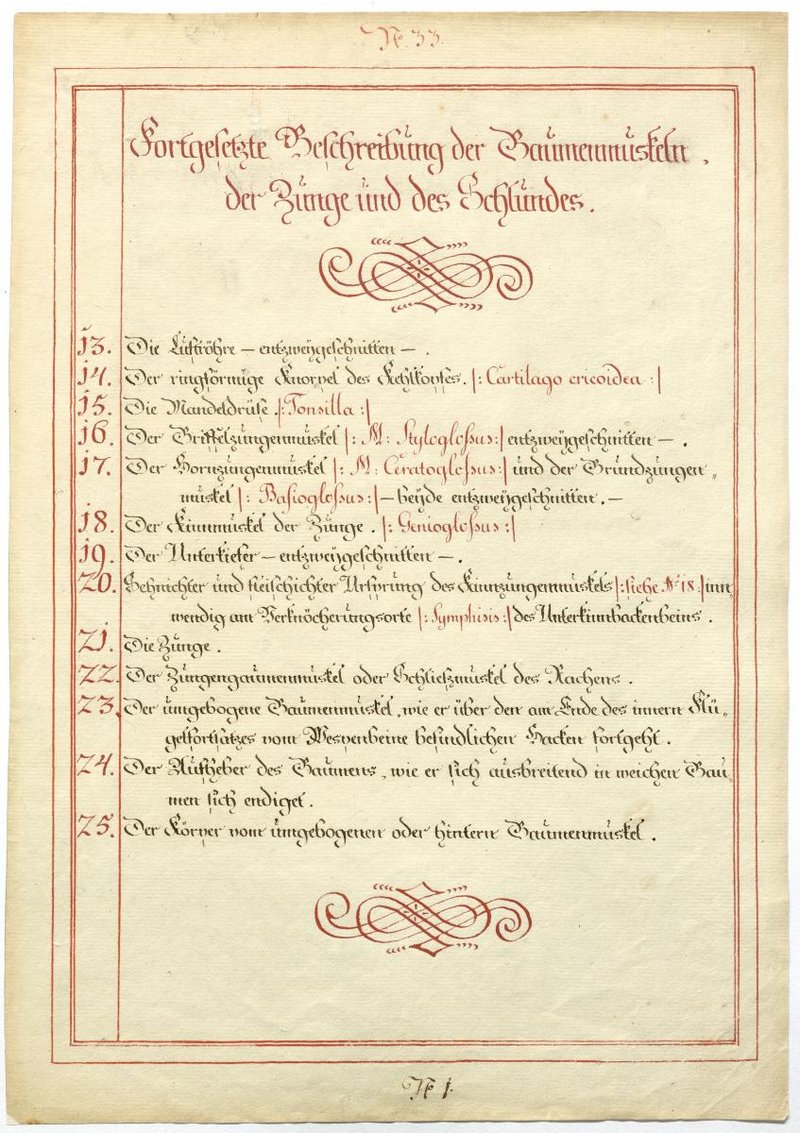 N° 33.
Fortgesetzte Beschreibung der Gaumenmuskeln,
der Zunge und des Schlundes.
13. Die Luftröhre – entzweygeschnitten – .
14. Der ringförmige Knorpel des Kehlkopfes. |: Cartilago cricoidea :|
15. Die Mandeldrüse. |: Tonsilla :|
16. Der Griffelzungenmuskel |: M: Styloglossus :| entzweygeschnitten – .
17. Der Hornzungenmuskel |: M: Ceratoglossus :| und der Grundzungen„
muskel |: Basioglossus :| – beyde entzweygeschnitten . –
18. Der Kinnmuskel der Zunge . |: Genioglossus :|
19. Der Unterkiefer – entzweygeschnitten – .
20. Sehnichter und fleischichter Ursprung des Kinnzungenmuskels |: siehe N° 18 :| inn„
wendig am Verknöcherungsorte |: Symphisis :| des Unterkinnbackenbeins .
21. Die Zunge .
22. Der Zungengaumenmuskel oder Schließmuskel des Rachens .
23. Der umgebogene Gaumenmuskel, wie er über den am Ende des innern Flü„
gelfortsatzes vom Wespenbeine befindlichen Hacken fortgeht .
24. Der Aufheber des Gaumens, wie er sich ausbreitend in weichen Gau„
men sich endiget .
25. Der Körper vom umgebogenen oder hintern Gaumenmuskel .
N° 1.